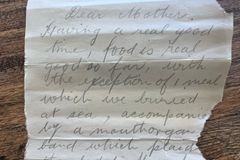 Dear Mother,
Having a real good
time, food is real
good so far, with
the exception of 1 meal
which we buried
at sea, accompanied
by a mouthorgan
band which plaid